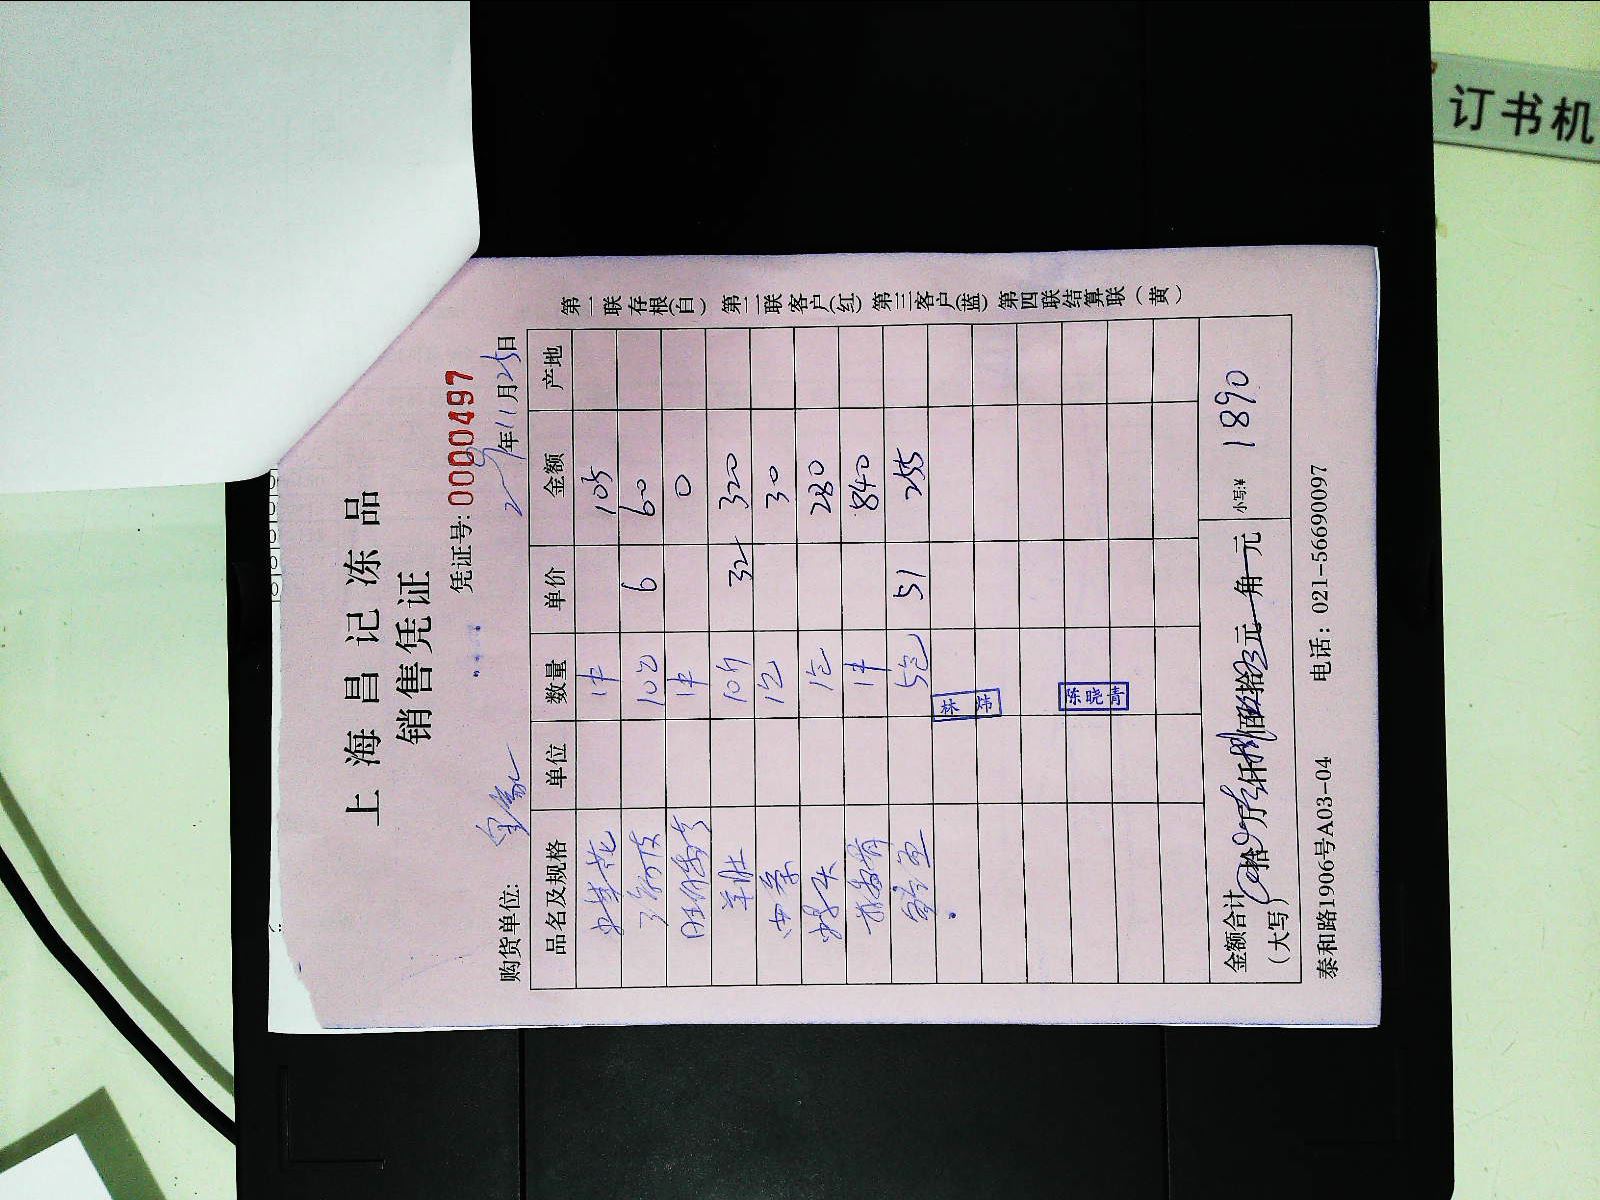 上海昌记冻品
销售凭证
凭证号: 0000497
购货单位: 年11月25日
品名及规格 单位 数量 单价 金额 产地
1件 105
10包 6 60
旺 1件 0
羊肚 10斤 32 320
西 1包 30
1包 280
1件 840
5包 51 255
林炜
陈晓青
金额合计 拾 万 仟 佰 拾 元 角 元 小写:¥ 1890
(大写)
泰和路1906号A03-04 电话: 021-56690097
第一联存根(白) 第二联客户(红) 第三客户(蓝) 第四联结算联(黄)
订书机